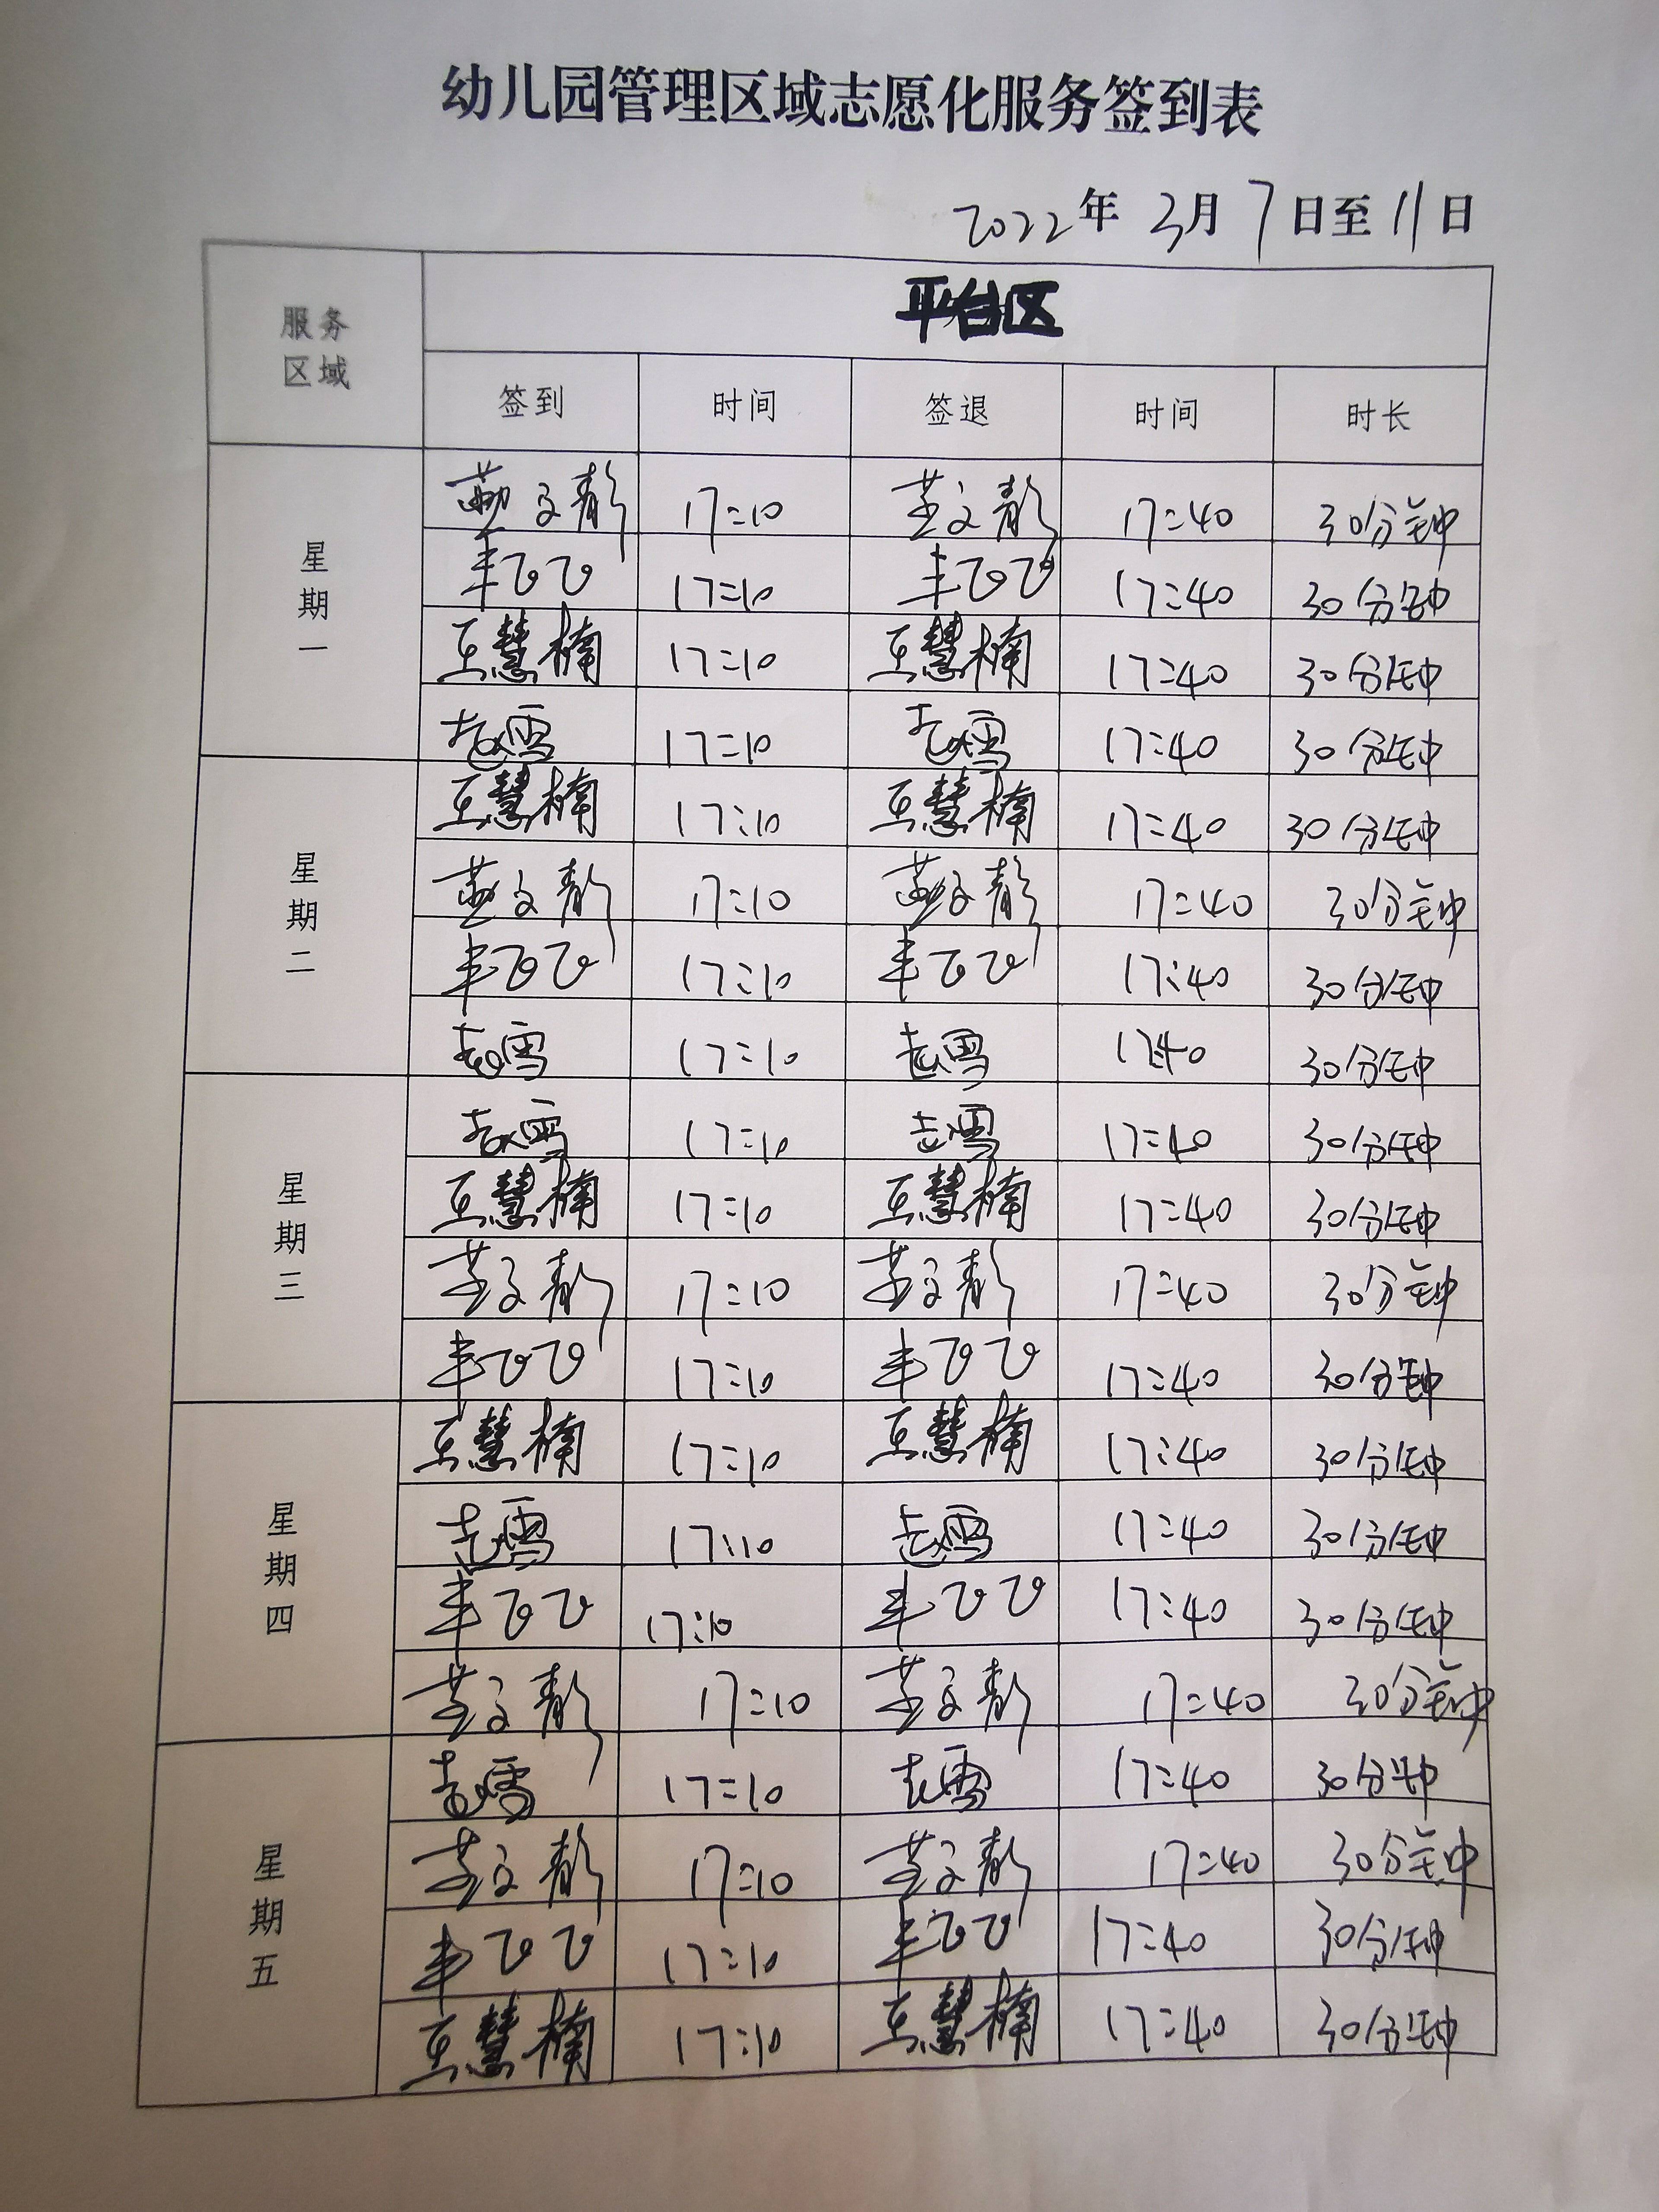 幼儿园管理区域志愿化服务签到表
2022年 3月 7日至 11日
服务区域 平台区
签到 时间 签退 时间 时长
星期一
文靓 17:10 文靓 17:40 30分钟
丰飞飞 17:10 丰飞飞 17:40 30分钟
王慧楠 17:10 王慧楠 17:40 30分钟
赵雪 17:10 赵雪 17:40 30分钟
星期二
王慧楠 17:10 王慧楠 17:40 30分钟
文靓 17:10 文靓 17:40 30分钟
丰飞飞 17:10 丰飞飞 17:40 30分钟
赵雪 17:10 赵雪 17:40 30分钟
星期三
赵雪 17:10 赵雪 17:40 30分钟
王慧楠 17:10 王慧楠 17:40 30分钟
文靓 17:10 文靓 17:40 30分钟
丰飞飞 17:10 丰飞飞 17:40 30分钟
星期四
王慧楠 17:10 王慧楠 17:40 30分钟
赵雪 17:10 赵雪 17:40 30分钟
丰飞飞 17:10 丰飞飞 17:40 30分钟
文靓 17:10 文靓 17:40 30分钟
星期五
赵雪 17:10 赵雪 17:40 30分钟
文靓 17:10 文靓 17:40 30分钟
丰飞飞 17:10 丰飞飞 17:40 30分钟
王慧楠 17:10 王慧楠 17:40 30分钟